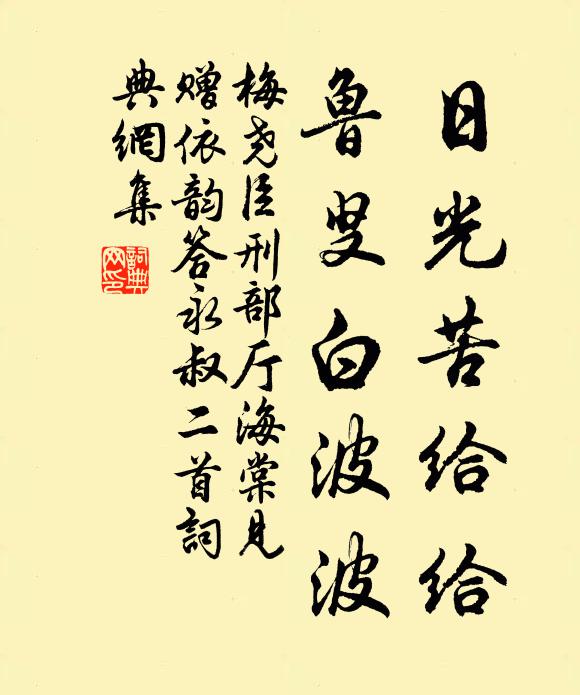 日光苦给给
鲁叟白波波
梅尧臣刑部厅海棠见
赠依韵答永叔二首詞
典網集
詞典網印